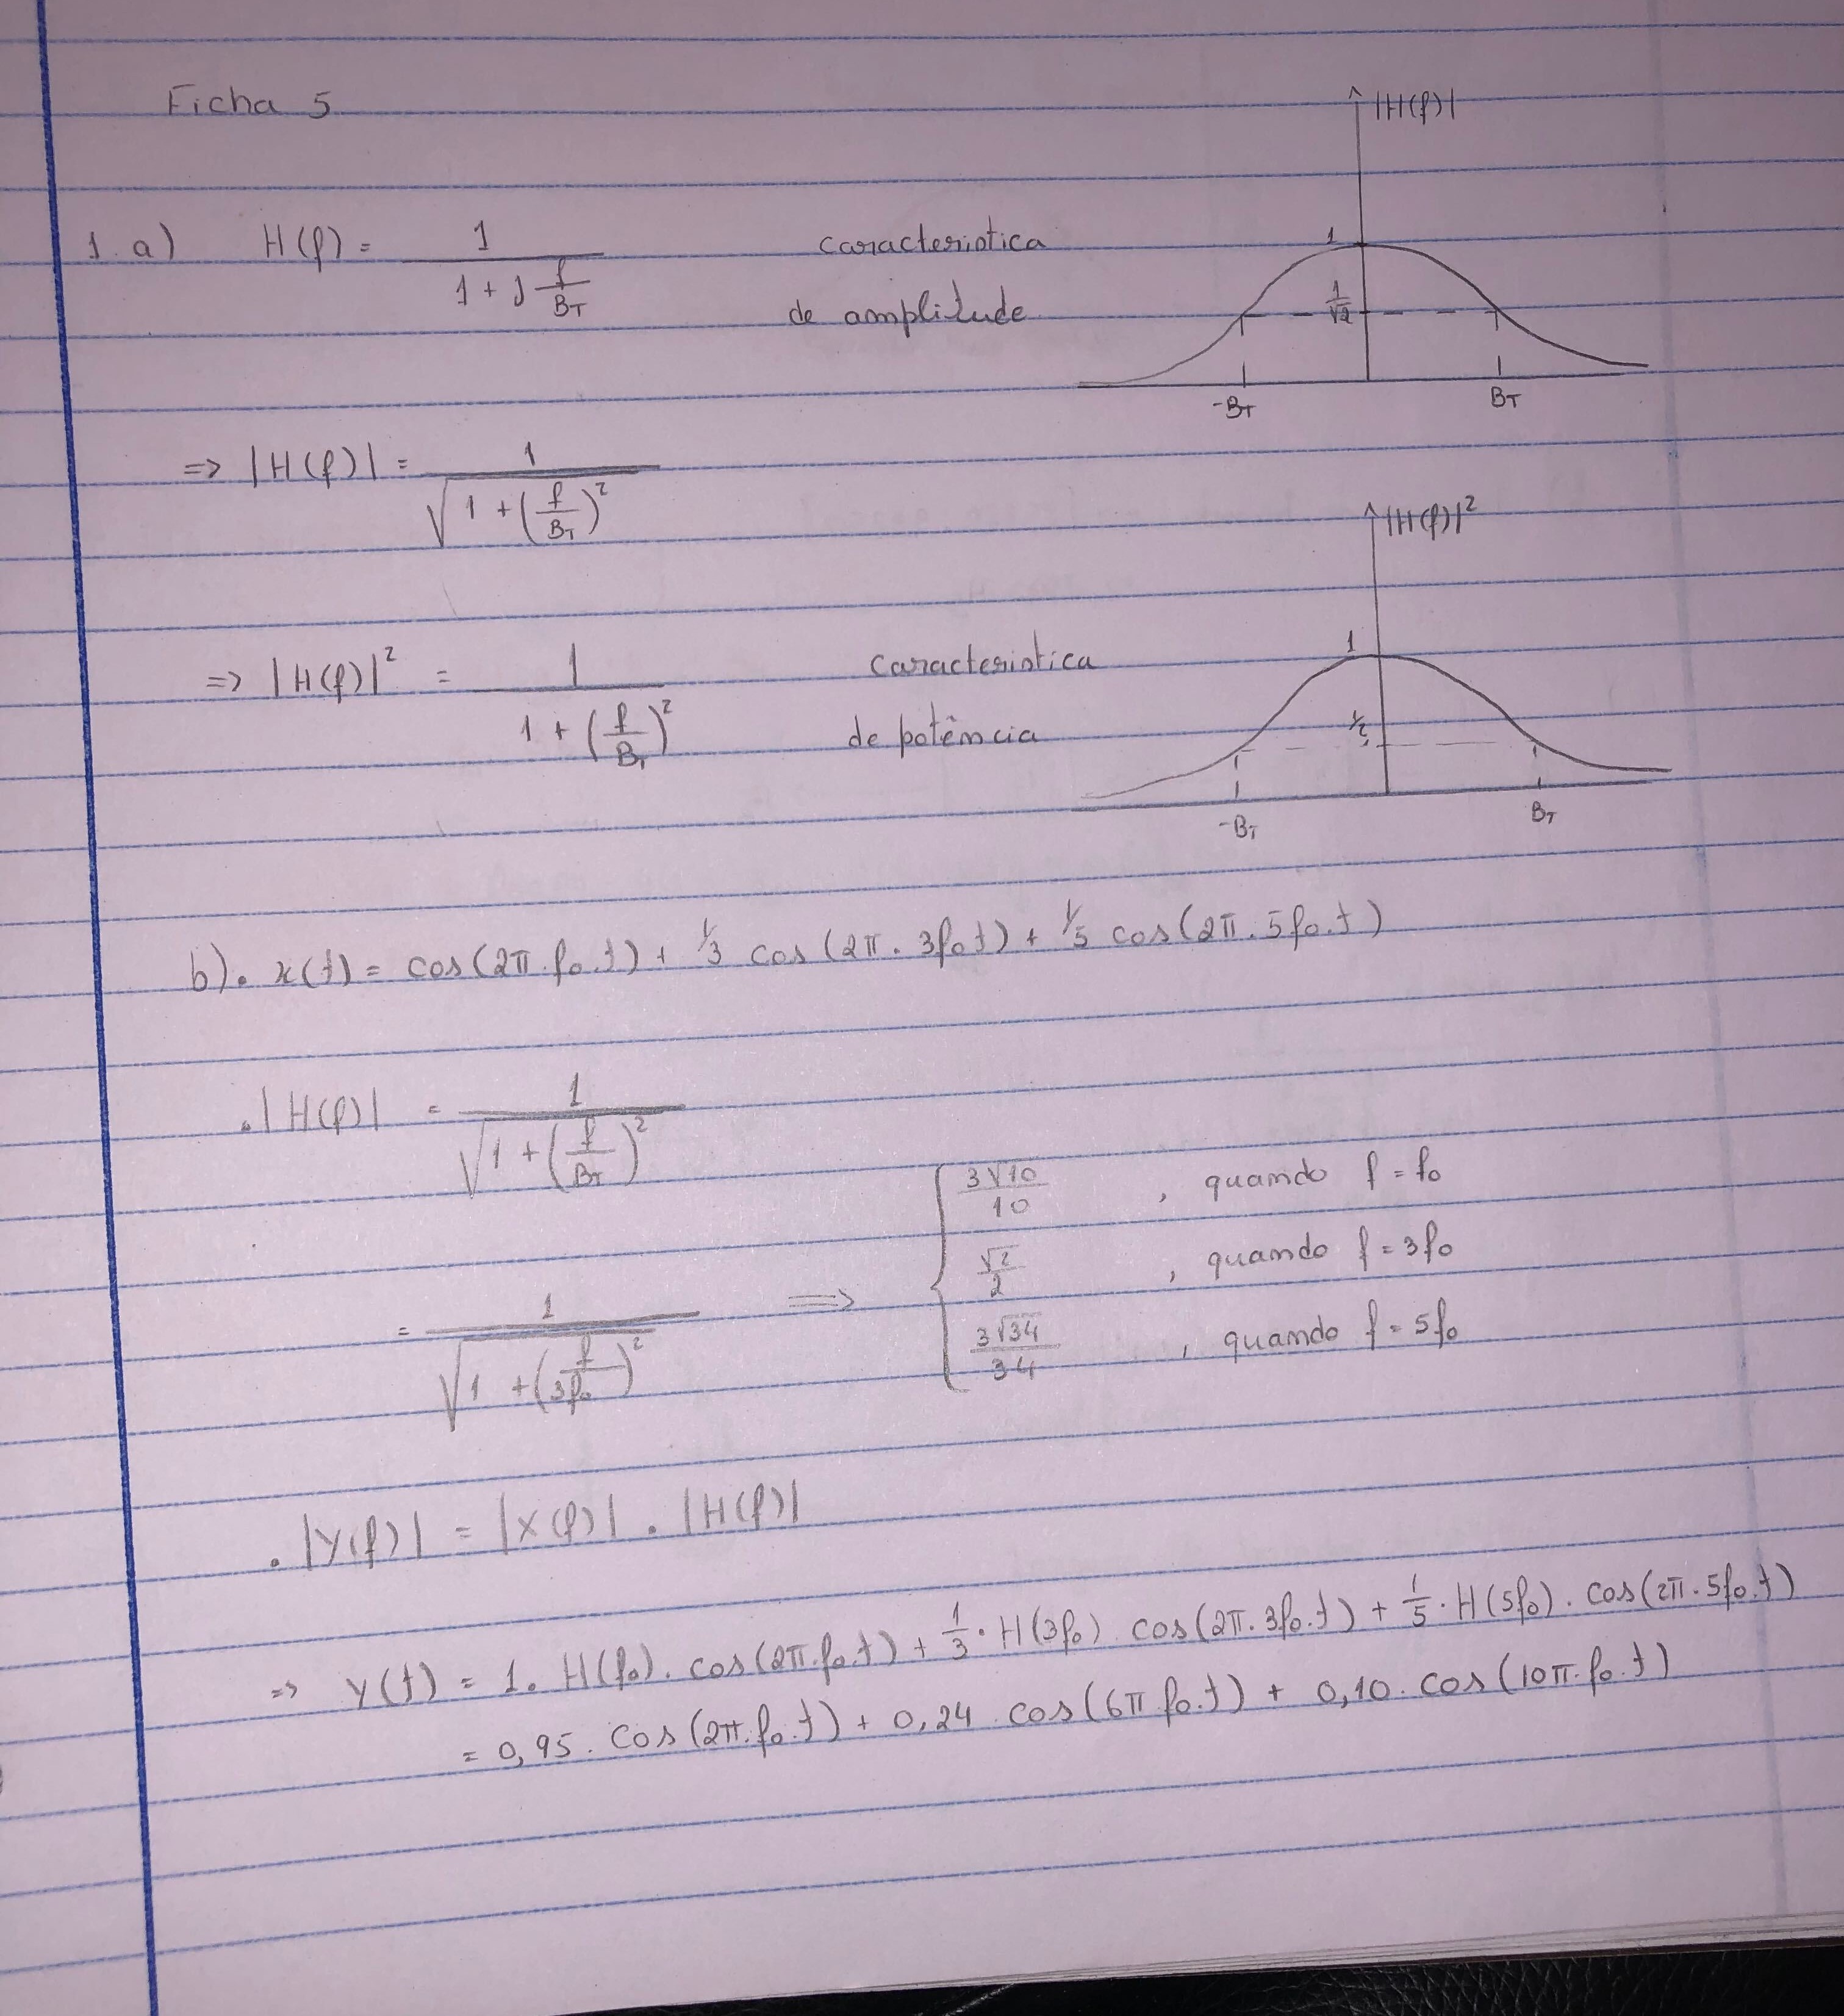 Ficha 5
|H(f)|
1. a) H(f) = 1 / (1 + j f/B_T) caracteristica
de amplitude
1
1/√2
-B_T B_T
=> |H(f)| = 1 / √(1 + (f/B_T)²)
|H(f)|²
=> |H(f)|² = 1 / (1 + (f/B_T)²) caracteristica
de potência
1
1/2
-B_T B_T
b). x(t) = cos(2π.f₀.t) + 1/3 cos(2π.3f₀t) + 1/5 cos(2π.5f₀.t)
.|H(f)| = 1 / √(1 + (f/B_T)²)
= 1 / √(1 + (f/3f₀)²) => { 3√10/10 , quando f = f₀
√2/2 , quando f = 3f₀
3√34/34 , quando f = 5f₀
. |Y(f)| = |X(f)| . |H(f)|
=> Y(t) = 1. H(f₀). cos(2π.f₀.t) + 1/3 . H(3f₀) cos(2π.3f₀.t) + 1/5 . H(5f₀). cos(2π.5f₀.t)
= 0,95. cos(2π.f₀.t) + 0,24 cos(6π f₀.t) + 0,10. cos(10π.f₀.t)